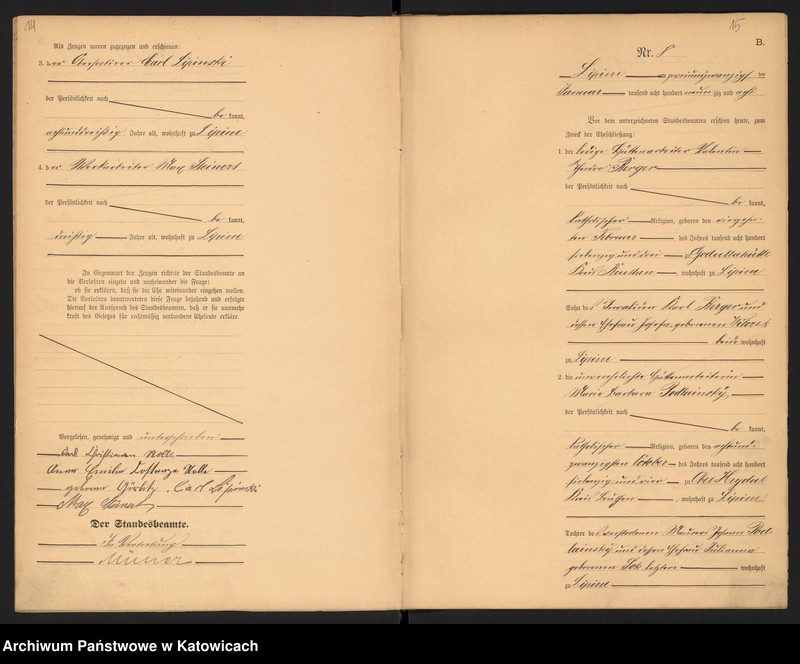 14
Als Zeugen waren zugezogen und erschienen:
3. der Carl Lipinski
der Persönlichkeit nach
be kannt,
achtunddreißig Jahre alt, wohnhaft zu Lipine
4. der Werkarbeiter Max
der Persönlichkeit nach
be kannt,
dreißig Jahre alt, wohnhaft zu Lipine
In Gegenwart der Zeugen richtete der Standesbeamte an
die Verlobten einzeln und nacheinander die Frage:
ob sie erklären, daß sie die Ehe miteinander eingehen wollen.
Die Verlobten beantworteten diese Frage bejahend und erfolgte
hierauf der Ausspruch des Standesbeamten, daß er sie nunmehr
kraft des Gesetzes für rechtmäßig verbundene Eheleute erkläre.
Vorgelesen, genehmigt und unterschrieben
Carl Christian Nolle
Anna Emilie Nolle
geborene Görlitz, Carl Lipinski
Max
Der Standesbeamte.
In Vertretung
Müller
15
B.
Nr. 8
Lipine am zweiundzwanzigsten
Januar tausend acht hundert neun zig und acht
Vor dem unterzeichneten Standesbeamten erschien heute, zum
Zweck der Eheschließung:
1. der ledige Hüttenarbeiter Valentin
Berger
der Persönlichkeit nach
be kannt,
katholischer Religion, geboren den vierzehn-
ten Februar des Jahres tausend acht hundert
siebenzig und drei zu Godullahütte
Kreis Beuthen, wohnhaft zu Lipine
Sohn des Invaliden Karl Berger und
dessen Ehefrau Josefa geborenen
beide wohnhaft
zu Lipine
2. die unverehelichte Hüttenarbeiterin
Marie Barbara
der Persönlichkeit nach
be kannt,
katholischer Religion, geboren den achtund-
zwanzigsten Oktober des Jahres tausend acht hundert
siebenzig und vier zu Ober Heyduk
Kreis Beuthen, wohnhaft zu Lipine
Tochter des verstorbenen Maurers Johann
und dessen Ehefrau Julianna
geborenen letztere wohnhaft
zu Lipine
Archiwum Państwowe w Katowicach